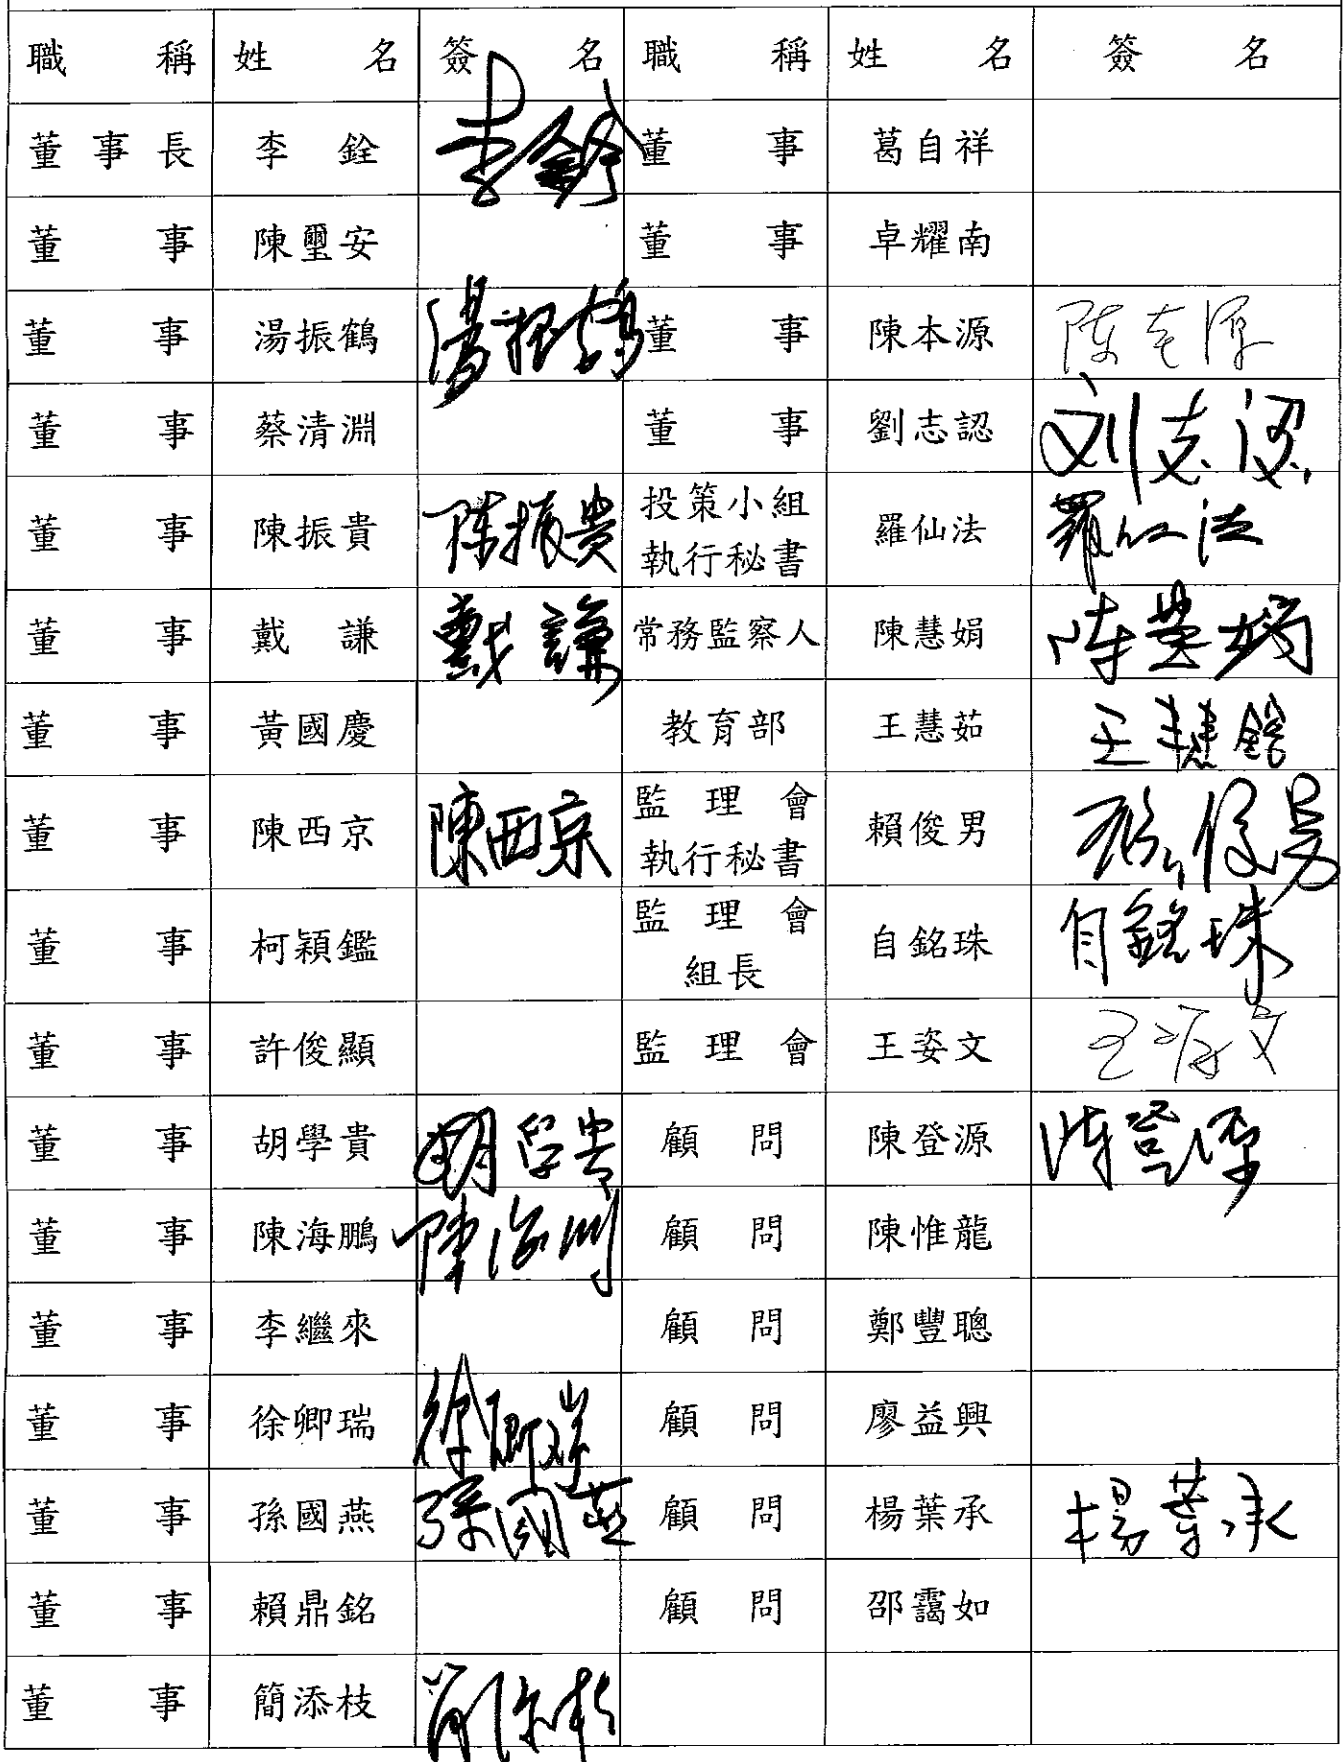 職 稱 姓 名 簽 名 職 稱 姓 名 簽 名
董 事 長 李 銓 李銓 董 事 葛自祥
董 事 陳璽安 董 事 卓耀南
董 事 湯振鶴 湯振鶴 董 事 陳本源 陈本源
董 事 蔡清淵 董 事 劉志認 刘志認
董 事 陳振貴 陈振貴 投策小組 執行秘書 羅仙法 羅仙法
董 事 戴 謙 戴謙 常務監察人 陳慧娟 陈慧娟
董 事 黃國慶 教育部 王慧茹
董 事 陳西京 陳西京 監 理 會 執行秘書 賴俊男 賴俊男
董 事 柯穎鑑 監 理 會 組長 自銘珠 自銘珠
董 事 許俊顯 監 理 會 王姿文 王姿文
董 事 胡學貴 胡學貴 顧 問 陳登源 陈登源
董 事 陳海鵬 陳海鵬 顧 問 陳惟龍
董 事 李繼來 顧 問 鄭豐聰
董 事 徐卿瑞 徐卿瑞 顧 問 廖益興
董 事 孫國燕 孫國燕 顧 問 楊葉承 楊葉承
董 事 賴鼎銘 顧 問 邵靄如
董 事 簡添枝 簡添枝